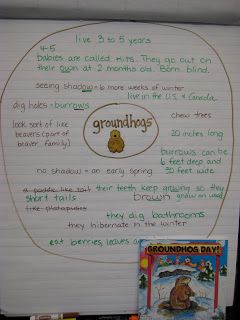 live 3 to 5 years
4-5
babies are called kits. They go out on
their own at 2 months old. Born blind.
seeing shadow = 6 more weeks of winter
live in the U.S. & Canada
dig holes = burrows
chew trees
groundhogs
look sort of like
beavers (part of
beaver family)
20 inches long
burrows can be
6 feet deep and
30 feet wide
no shadow = an early spring
a paddle like tail
their teeth keep growing so they
short tails
brown
gnaw on wood
like platapuses
they dig bathrooms
they hibernate in the winter
eat berries leaves
GROUNDHOG DAY!